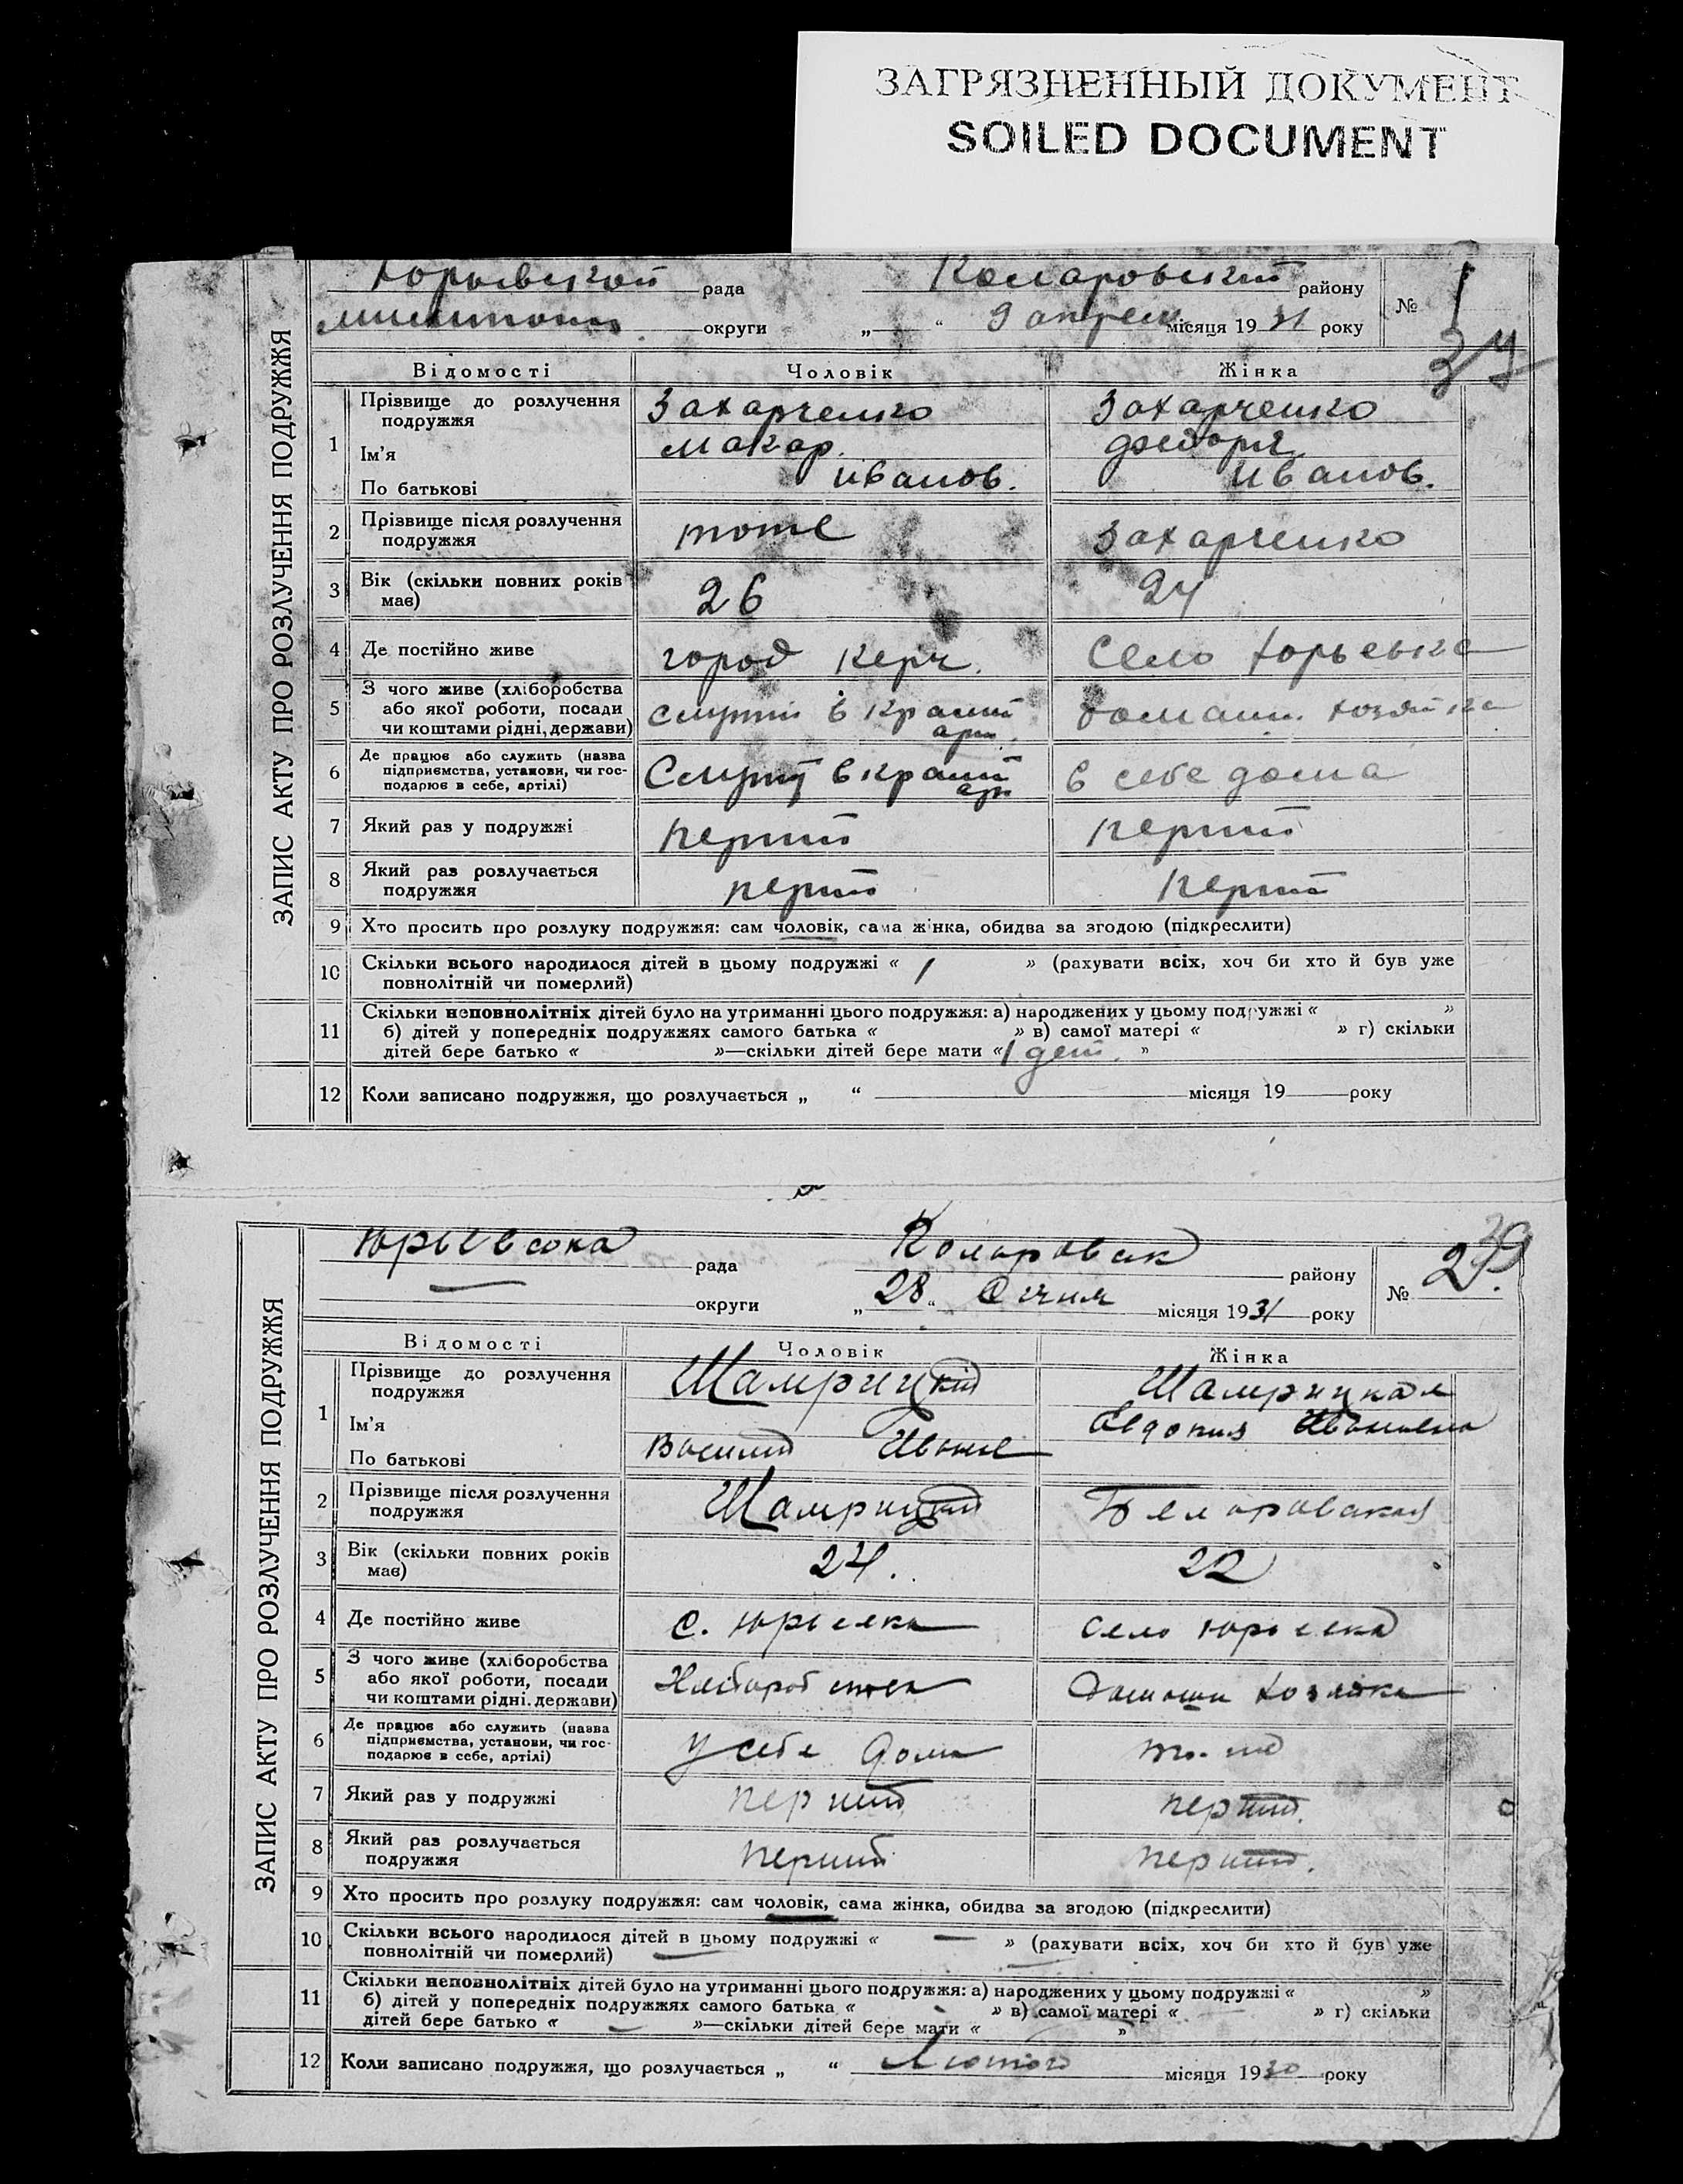 ЗАГРЯЗНЕННЫЙ ДОКУМЕНТ
SOILED DOCUMENT
ЗАПИС АКТУ ПРО РОЗЛУЧЕННЯ ПОДРУЖЖЯ
рада районy №
округи „ “ 9 місяця 19 31 року
Відомості Чоловік Жінка
1 Прізвище до розлучення Захарченко Захарченко
подружжя
Ім’я Макар
По батькові Иванов. Иванов.
2 Прізвище після розлучення тоже Захарченко
подружжя
3 Вік (скільки повних років 26 24
має)
4 Де постійно живе город Керч. Село Юрьевка
5 З чого живе (хліборобства
або якої роботи, посади домашн. хозяйка
чи коштами рідні, держави)
6 Де працює або служить (назва
підприємства, установи, чи гос- в себе дома
подарює в себе, артілі)
7 Який раз у подружжі
8 Який раз розлучається
подружжя
9 Хто просить про розлуку подружжя: сам чоловік, сама жінка, обидва за згодою (підкреслити)
10 Скільки всього народилося дітей в цьому подружжі « 1 » (рахувати всіх, хоч би хто й був уже
повнолітній чи померлий)
11 Скільки неповнолітніх дітей було на утриманні цього подружжя: а) народжених у цьому подружжі « »
б) дітей у попередніх подружжях самого батька « » в) самої матері « » г) скільки
дітей бере батько « »—скільки дітей бере мати « 1 дет. »
12 Коли записано подружжя, що розлучається „ “ місяця 19 року
ЗАПИС АКТУ ПРО РОЗЛУЧЕННЯ ПОДРУЖЖЯ
рада району № 2
округи „ 28 “ Січня місяця 1931 року
Відомості Чоловік Жінка
1 Прізвище до розлучення Шамрицкий Шамрицкая
подружжя
Ім’я Евдокия Ивановна
По батькові Василий
2 Прізвище після розлучення Шамрицкий
подружжя
3 Вік (скільки повних років 24. 22
має)
4 Де постійно живе с. Юрьевка село Юрьевка
5 З чого живе (хліборобства
або якої роботи, посади Хлібороб
чи коштами рідні, держави)
6 Де працює або служить (назва
підприємства, установи, чи гос- у себе дома
подарює в себе, артілі)
7 Який раз у подружжі перший перший.
8 Який раз розлучається перший перший.
подружжя
9 Хто просить про розлуку подружжя: сам чоловік, сама жінка, обидва за згодою (підкреслити)
10 Скільки всього народилося дітей в цьому подружжі « — » (рахувати всіх, хоч би хто й був уже
повнолітній чи померлий)
11 Скільки неповнолітніх дітей було на утриманні цього подружжя: а) народжених у цьому подружжі « »
б) дітей у попередніх подружжях самого батька « » в) самої матері « » г) скільки
дітей бере батько « — »—скільки дітей бере мати « »
12 Коли записано подружжя, що розлучається „ “ Лютого місяця 1930 року